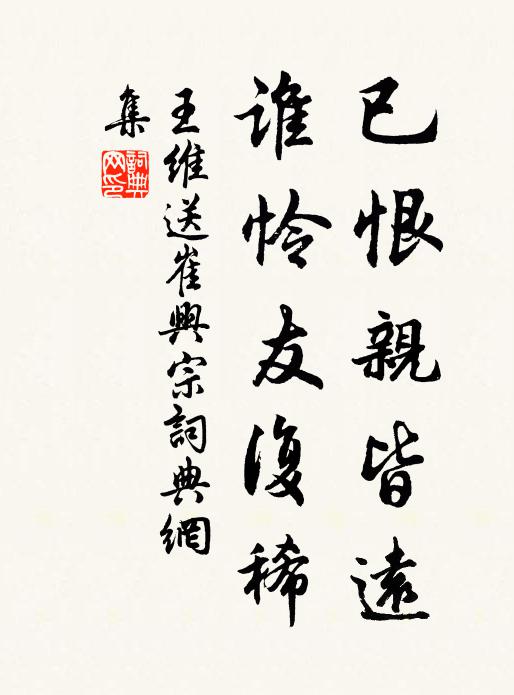 已恨親皆遠
誰怜友復稀
王維送崔興宗詞典網
集
詞典
网印